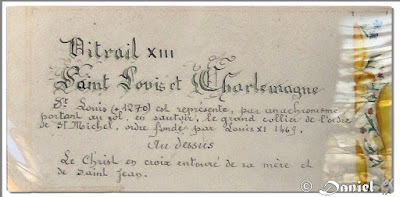 Vitrail XIII
Saint Louis et Charlemagne
St Louis (+1270) est représenté, par anachronisme
portant au col, en sautoir, le grand collier de l'ordre
de St Michel, ordre fondé par Louis XI 1469.
Au dessus
Le Christ en croix entouré de sa mère et
de Saint Jean.
© Daniel